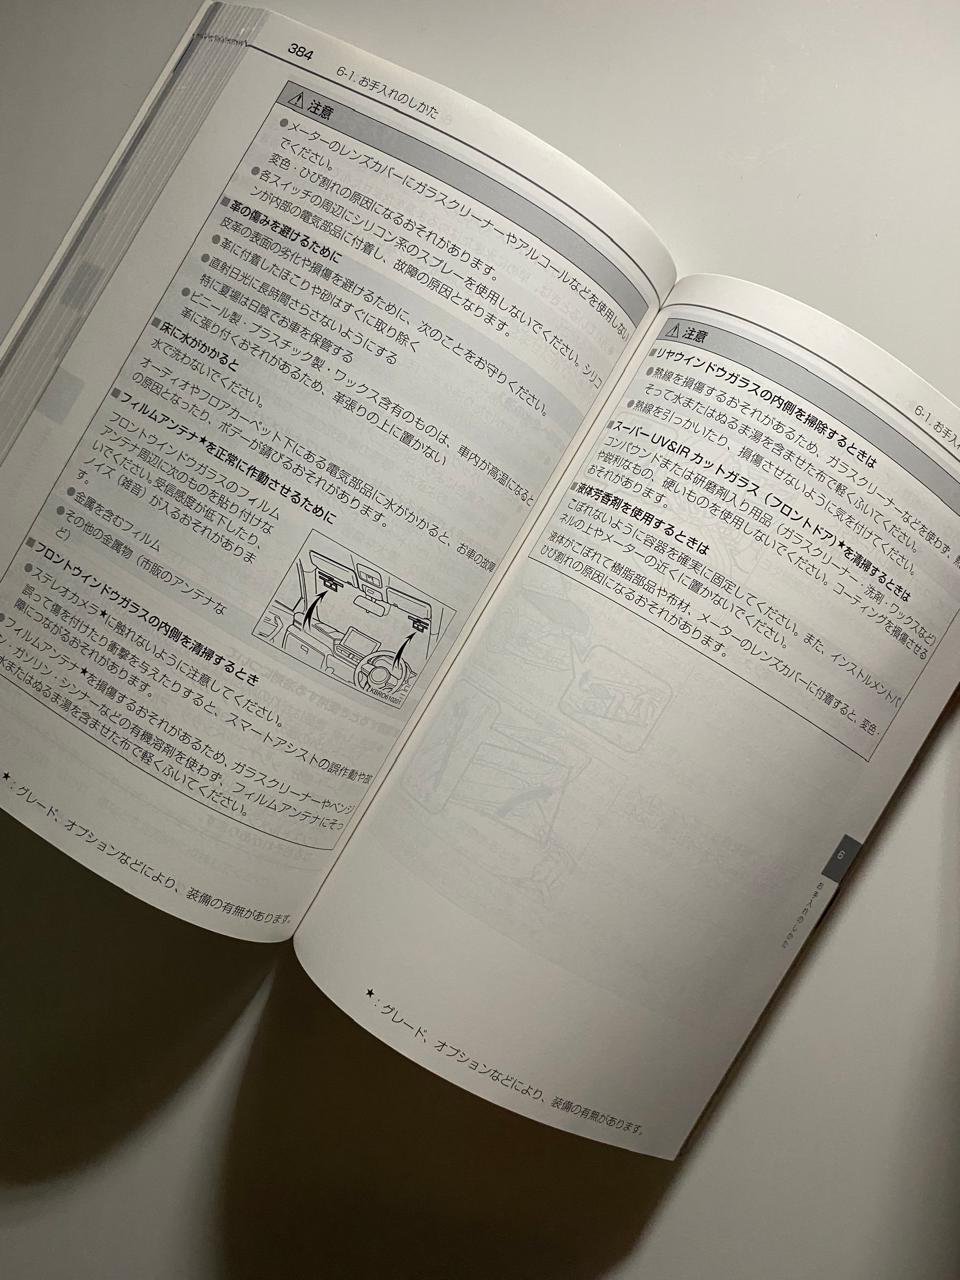 384
6-1. お手入れのしかた
注意
●メーターのレンズカバーにガラスクリーナーやアルコールなどを使用しない
でください。
変色・ひび割れの原因になるおそれがあります。
●各スイッチの周辺にシリコン系のスプレーを使用しないでください。シリコ
ンが内部の電気部品に付着し、故障の原因となります。
■革の傷みを避けるために
皮革の表面の劣化や損傷を避けるために、次のことをお守りください。
●革に付着したほこりや砂はすぐに取り除く
●直射日光に長時間さらさないようにする
特に夏場は日陰でお車を保管する
●ビニール製・プラスチック製・ワックス含有のものは、車内が高温になると
革に張り付くおそれがあるため、革張りの上に置かない
■床に水がかかると
水で洗わないでください。
オーディオやフロアカーペット下にある電気部品に水がかかると、お車の故障
の原因となったり、ボデーが錆びるおそれがあります。
■フィルムアンテナ★を正常に作動させるために
フロントウインドウガラスのフィルム
アンテナ周辺に次のものを貼り付けな
いでください。受信感度が低下したり、
ノイズ（雑音）が入るおそれがありま
す。
●金属を含むフィルム
●その他の金属物（市販のアンテナな
ど）
■フロントウインドウガラスの内側を清掃するとき
●ステレオカメラ★に触れないように注意してください。
誤って傷を付けたり衝撃を与えたりすると、スマートアシストの誤作動や故
障につながるおそれがあります。
●フィルムアンテナ★を損傷するおそれがあるため、ガラスクリーナーやベンジ
ン、ガソリン・シンナーなどの有機溶剤を使わず、フィルムアンテナにそっ
水またはぬるま湯を含ませた布で軽くふいてください。
★：グレード、オプションなどにより、装備の有無があります。
6-1. お手入れ
注意
■リヤウインドウガラスの内側を掃除するときは
●熱線を損傷するおそれがあるため、ガラスクリーナーなどを使わず、熱
そって水またはぬるま湯を含ませた布で軽くふいてください。
●熱線を引っかいたり、損傷させないように気を付けてください。
■スーパーUV&IRカットガラス（フロントドア）★を清掃するときは
コンパウンドまたは研磨剤入り用品（ガラスクリーナー・洗剤・ワックスなど）
や鋭利なもの、硬いものを使用しないでください。コーティングを損傷させる
おそれがあります。
■液体芳香剤を使用するときは
こぼれないように容器を確実に固定してください。また、インストルメントパ
ネルの上やメーターの近くに置かないでください。
液体がこぼれて樹脂部品や布材、メーターのレンズカバーに付着すると、変色・
ひび割れの原因になるおそれがあります。
6
お手入れのしかた
★：グレード、オプションなどにより、装備の有無があります。